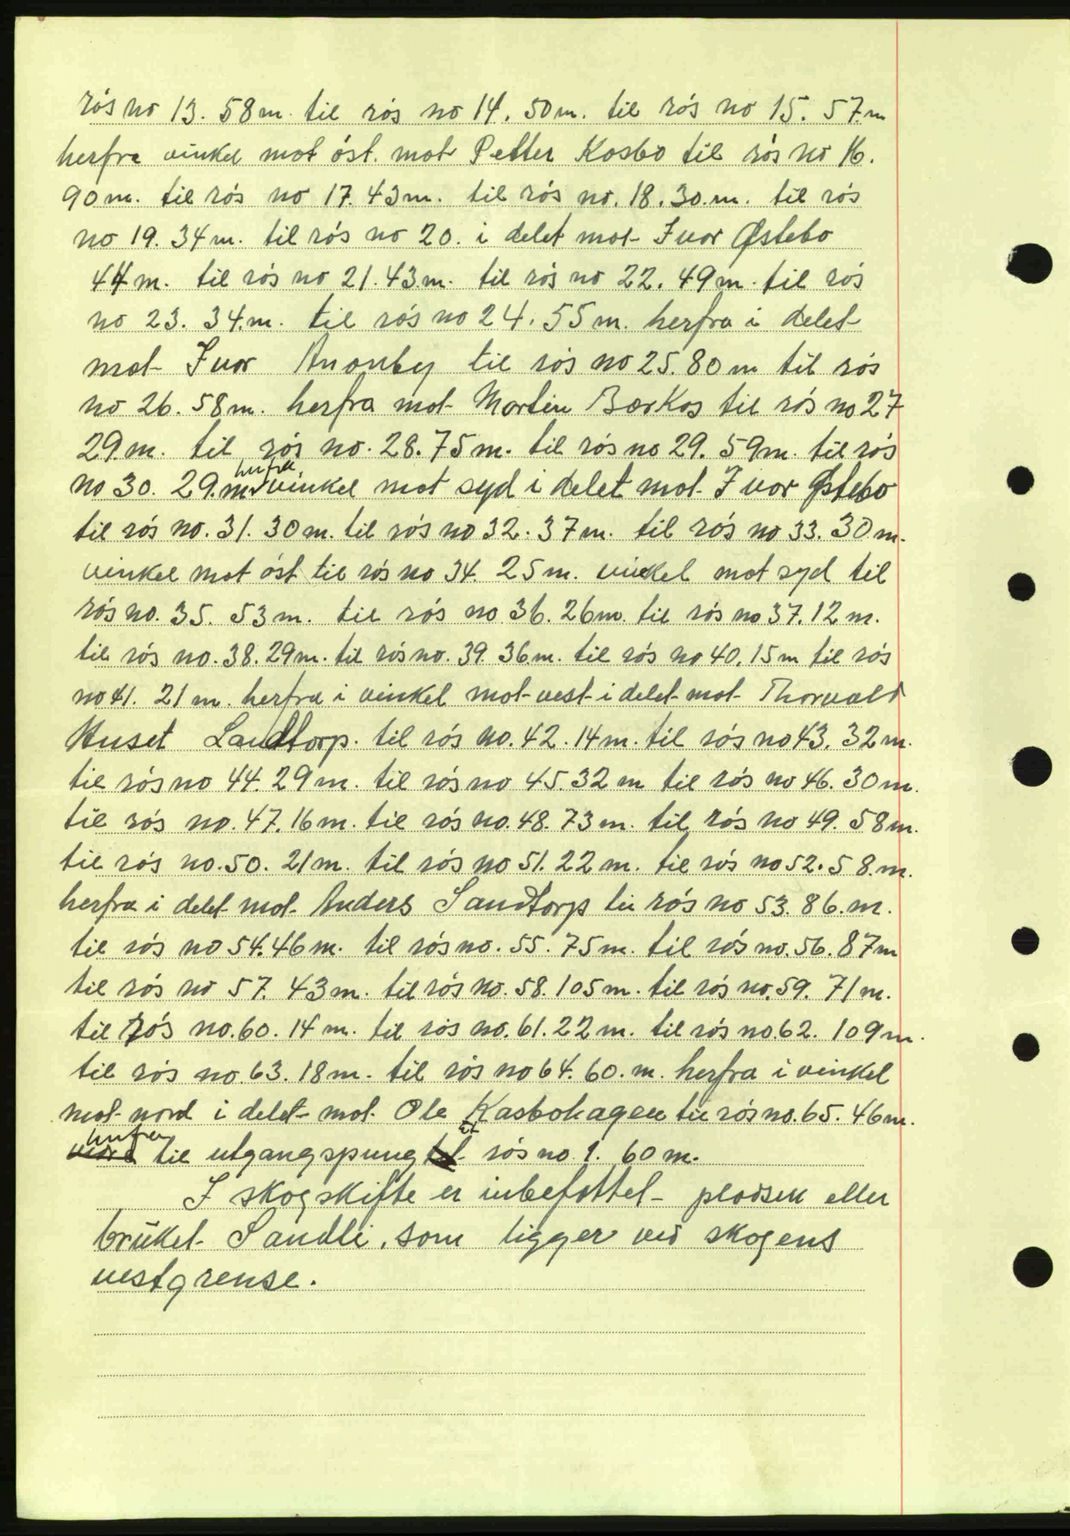 rós no 13. 58m. til rós no 14. 50m. til rós no 15. 57.m
herfra vinkel mot óst. mot Petter Kosbo til rós no 16.
90m. til rós no 17. 43m. til rós no. 18. 30.m. til rós
no 19. 34m. til rós no 20. i delet mot Ivor Østebo
44m. til rós no 21. 43.m. til rós no 22. 49m. til rós
no 23. 34.m. til rós no 24. 55m. herfra i delet
mot Ivor til rós no 25. 80m til rós
no 26. 58m. herfra mot Martin til rós no 27
29.m. til rós no. 28. 75m. til rós no 29. 59m. til rós
no 30. 29.m. herfra vinkel mot syd i delet mot Ivor Østebo
til rós no. 31. 30m. til rós no 32. 37m. til rós no 33. 30m.
vinkel mot óst til rós no 34. 25m. vinkel mot syd til
rós no. 35. 53m. til rós no 36. 26m. til rós no 37. 12m.
til rós no. 38. 29m. til rós no. 39. 36m. til rós no 40. 15m til rós
no 41. 21m. herfra i vinkel mot vest i delet mot Thorvald
Huset Sandtorp. til rós no. 42. 14m. til rós no 43. 32m.
til rós no 44. 29m. til rós no 45. 32m til rós no 46. 30m.
til rós no. 47. 16m. til rós no. 48. 73m. til rós no 49. 58m.
til rós no. 50. 21m. til rós no 51. 22m. til rós no 52. 58.m.
herfra i delet mot Anders Sandtorp til rós no 53. 86.m.
til rós no 54. 46m. til rós no. 55. 75m. til rós no. 56. 87m
til rós no 57. 43m. til rós no. 58. 105m. til rós no. 59. 71m.
til rós no. 60. 14m. til rós no. 61. 22m. til rós no 62. 109m.
til rós no. 63. 18m. til rós no 64. 60.m. herfra i vinkel
mot nord i delet mot Ole Kasbohagen til rós no. 65. 46m.
herfra til utgangspunget rós no 1. 60m.
I skogskifte er inbefattet plassen eller
brúket Sandli, som ligger ved skogens
vestgrense.